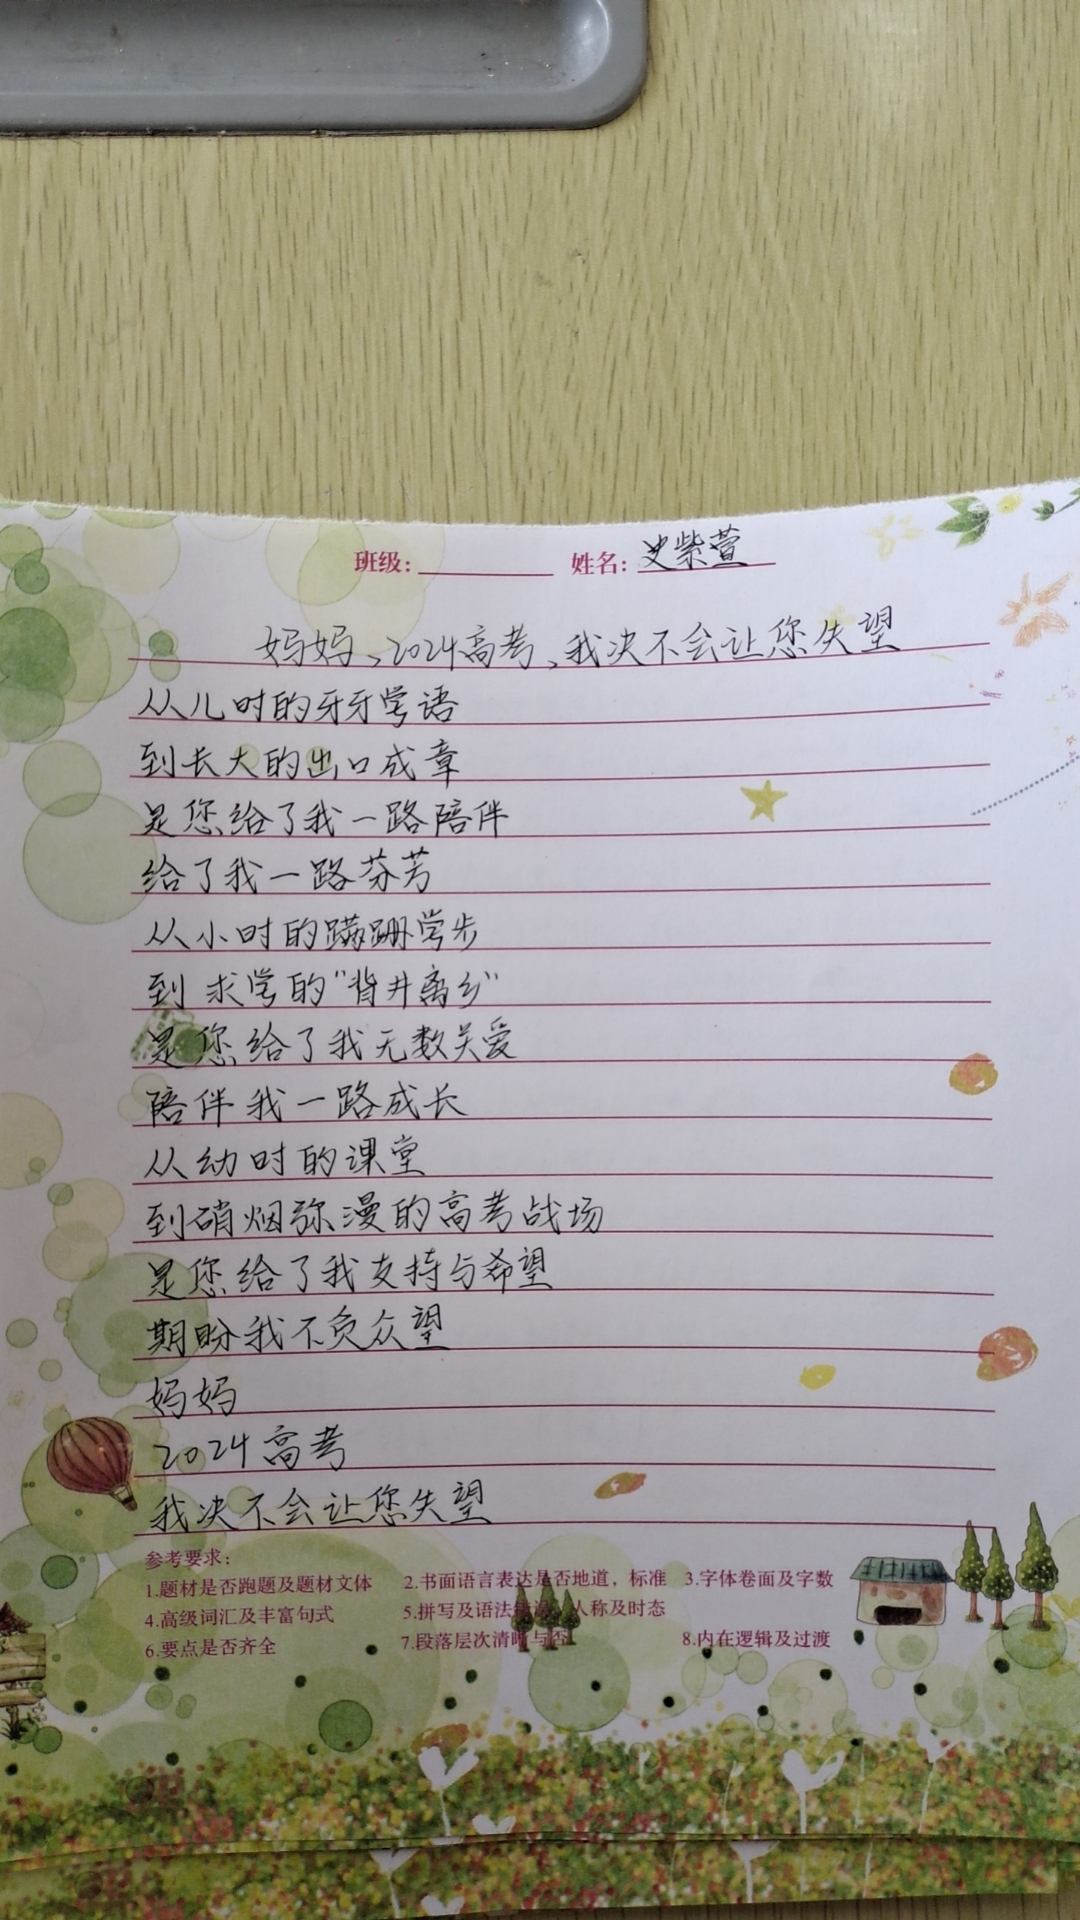 班级: 姓名: 史紫萱
妈妈、2024高考、我决不会让您失望
从儿时的牙牙学语
到长大的出口成章
是您给了我一路陪伴
给了我一路芬芳
从小时的蹒跚学步
到求学的"背井离乡"
是您给了我无数关爱
陪伴我一路成长
从幼时的课堂
到硝烟弥漫的高考战场
是您给了我支持与希望
期盼我不负众望
妈妈
2024高考
我决不会让您失望
参考要求:
1.题材是否跑题及题材文体 2.书面语言表达是否地道，标准 3.字体卷面及字数
4.高级词汇及丰富句式 5.拼写及语法错误，人称及时态
6.要点是否齐全 7.段落层次清晰与否 8.内在逻辑及过渡